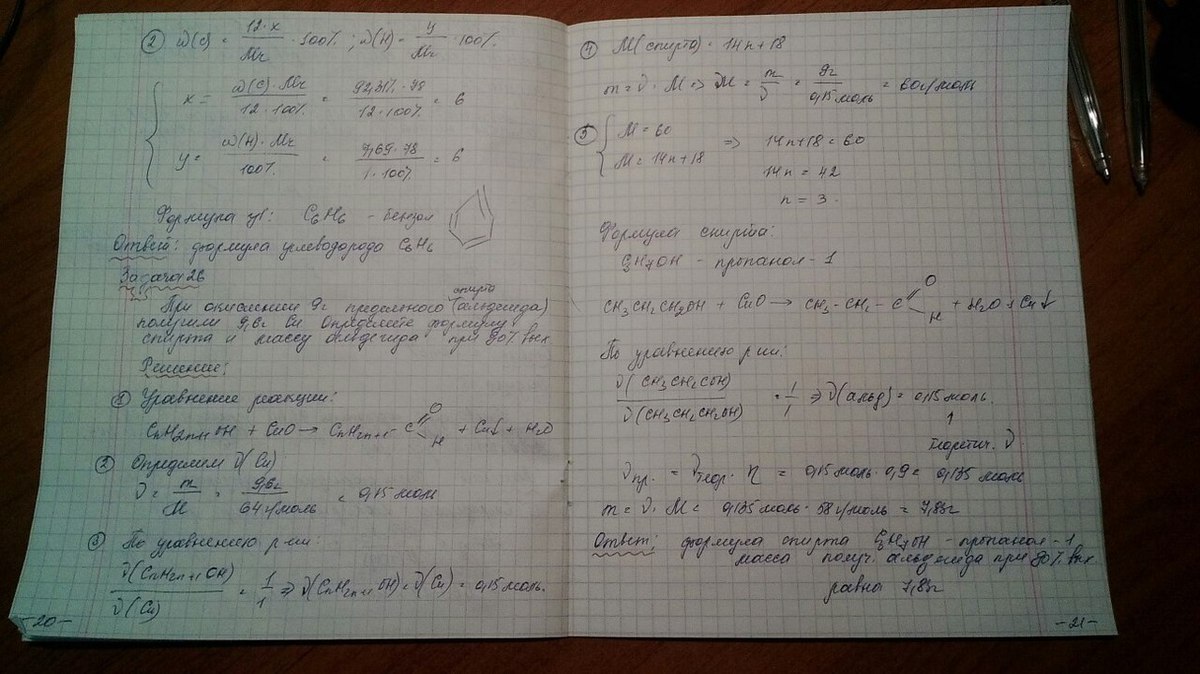 ② ω(C) = 12·x / Mr · 100% ; ω(H) = y / Mr · 100%
x = ω(C)·Mr / 12·100% = 92,31%·78 / 12·100% = 6
y = ω(H)·Mr / 100% = 7,69·78 / 1·100% = 6
Формула ув: C6H6 - бензол
Ответ: формула углеводорода C6H6
Задача 26
спирта
При окислении 9г предельного (альдегида)
получили 9,6г Cu. Определите формулу
спирта и массу альдегида при 90% вых
Решение:
① Уравнение реакции:
CnH2n+1OH + CuO → CnH2n+1 C O H + Cu↓ + H2O
② Определим ν(Cu)
ν = m / M = 9,6г / 64 г/моль = 0,15 моль
③ По уравнению р-ии:
ν(CnH2n+1OH) / ν(Cu) = 1/1 ⇒ ν(CnH2n+1OH) = ν(Cu) = 0,15 моль.
-20-
④ M(спирта) = 14n+18
m = ν·M ⇒ M = m / ν = 9г / 0,15 моль = 60 г/моль
⑤ M = 60
M = 14n+18 ⇒ 14n+18 = 60
14n = 42
n = 3.
Формула спирта:
C3H7OH - пропанол-1
CH3CH2CH2OH + CuO → CH3-CH2-C O H + H2O + Cu↓
По уравнению р-ии:
ν(CH3CH2COH) / ν(CH3CH2CH2OH) = 1/1 ⇒ ν(альд) = 0,15 моль.
теоретич. ν
νпр. = νтеор·η = 0,15 моль·0,9 = 0,135 моль
m = ν·M = 0,135 моль·58 г/моль = 7,83г
Ответ: формула спирта C3H7OH - пропанол-1
масса получ. альдегида при 90% вых
равна 7,83г
-21-